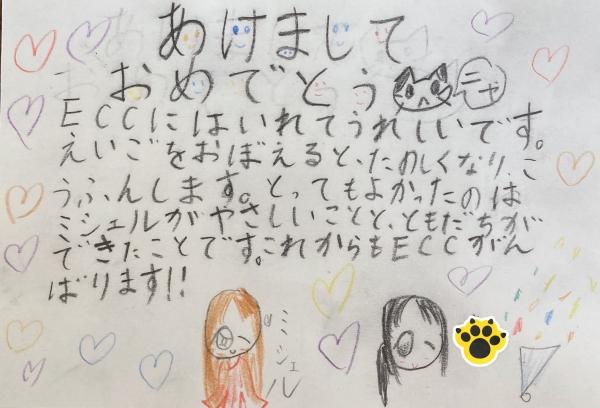 あけまして
おめでとう
ニャ
ECCにはいれてうれしいです。
えいごをおぼえると、たのしくなり、こ
うふんします。とってもよかったのは
ミシェルがやさしいことと、ともだちが
できたことです。これからもECCがん
ばります!!
ミシェル